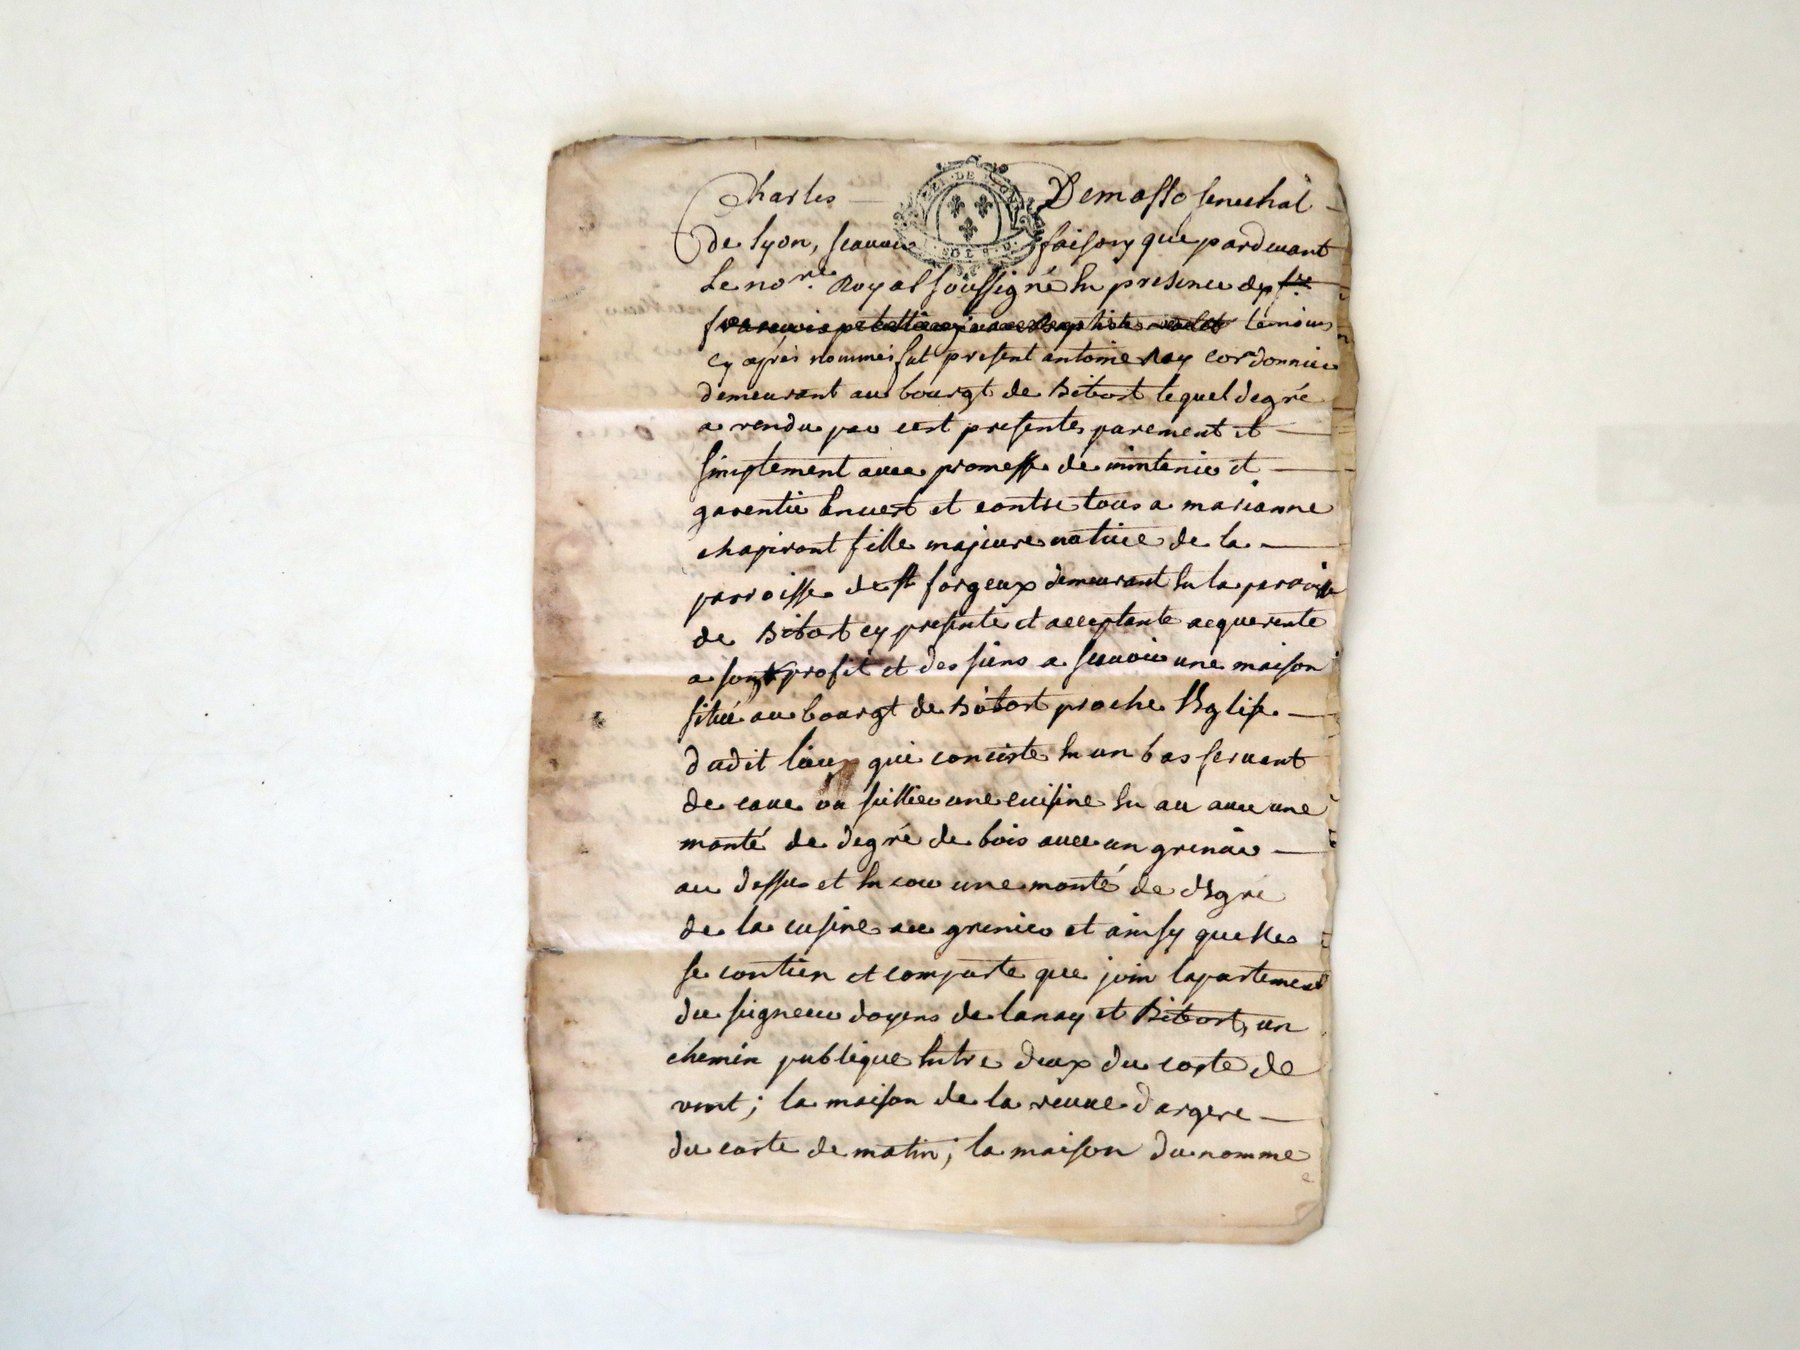 Charles Demasso senechal
de lyon, scauoir faisons que pardeuant
Le no.re Royal soussigné En presence de
temoins
cy aprés nommés fut present antoine Ray cordonnier
demeurant au bourgt de Bibost lequel degré
a rendu par cest presentes purement et
simplement auec promesse de mintenir et
garentir Enuest et contre tous a marianne
chapiront fille majeure natiue de la
parroisse de st forgeux demeurant En la parroisse
de Bibost cy presente et acceptante acquerente
a son profit et des siens a scauoir une maison
situé au bourgt de Bibost proche l'Eglise
dudit lieu qui conciste En un bas seruant
de caue ou sellier une cuisine En au auec une
monté de degré de bois auec un grenier
au dessus et En cour une monté de degré
de la cusine au grenier et ainsy quelle
se contien et comporte que join lapartement
du seigneur doyens de lanay et Bibost, un
chemin publique Entre deux du coste de
vent; la maison de la veuue dargere
du coste de matin; la maison du nomme